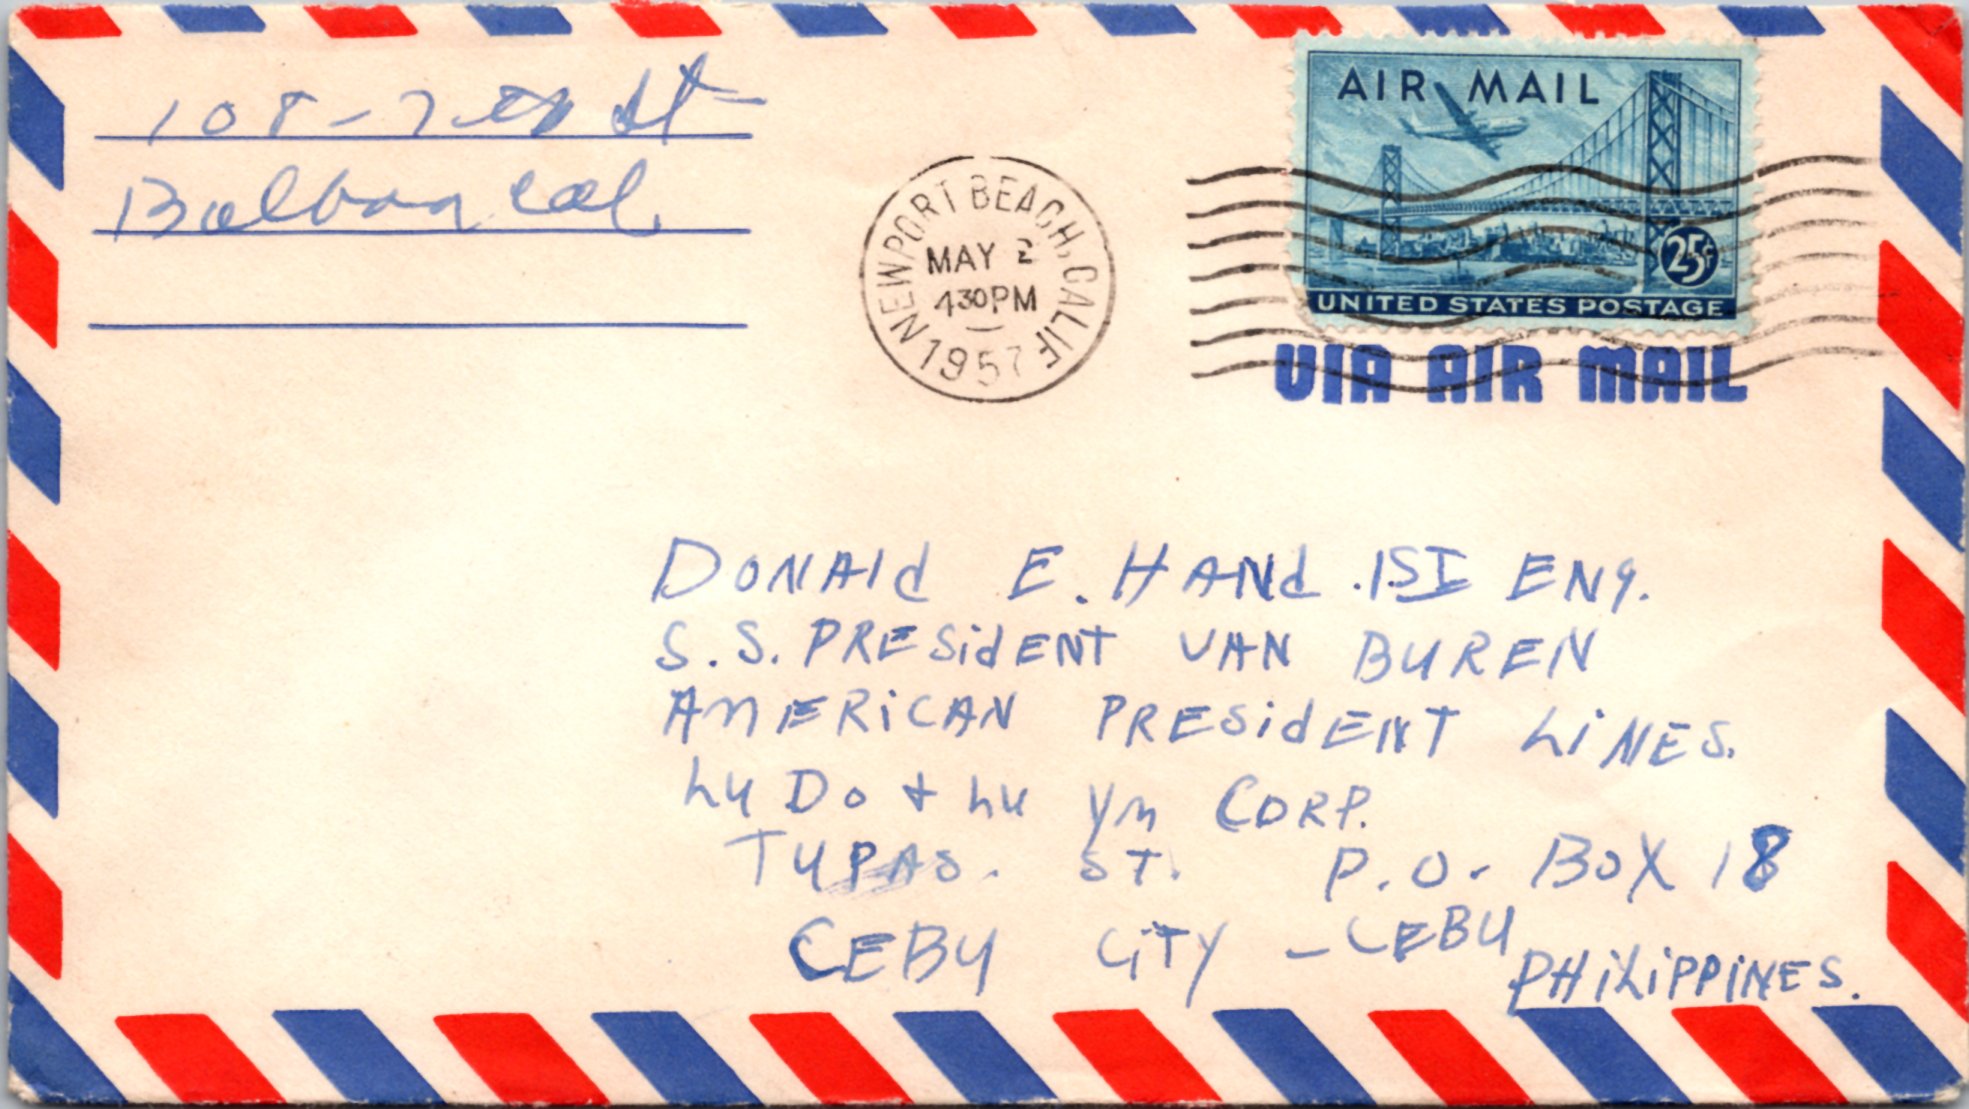 108-7th St
Balboa Cal.
NEWPORT BEACH, CALIF
MAY 2
430PM
1957
AIR MAIL
25¢
UNITED STATES POSTAGE
VIA AIR MAIL
DONAld E. HANd .1ST ENg.
S.S. PRESidENT VAN BUREN
AMERiCAN PRESidENT LiNES.
Lu Do + Lu Ym CORP.
TUPAS. ST. P.O. BOX 18
CEBU CiTY - CEBU
PHiLiPPiNES.